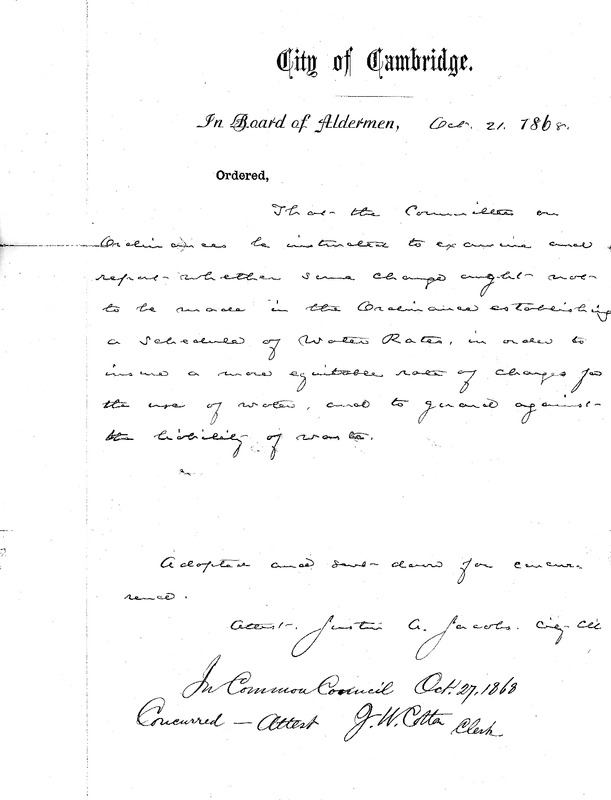 City of Cambridge.
In Board of Aldermen, Oct. 21. 1868.
Ordered,
That the Committee on
Ordinances be instructed to examine and
report whether some change ought not
to be made in the Ordinance establishing
a schedule of Water Rates, in order to
insure a more equitable rate of charges for
the use of water, and to guard against
the liability of waste.
Adopted and sent down for concur-
rence.
Attest. Justin A. Jacobs. City Clk
In Common Council Oct. 27, 1868
Concurred — Attest J. W. Cotton Clerk.